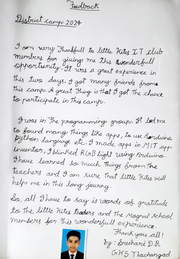 Feedback
District camp: 2024
I am very thankfull to little Kites IT club
members for giving me this wonderfull
opportunity. It was a great experience in
this two days. I got many friends from
this camp. A great thing is that I got the chance
to participate in this camp.
I was in the programming group. It led me
to found many things like apps, to use Arduino
python language etc. I made apps in MIT app
inventor, I blinked RGB light using Arduino.
I have learned so much things from the
teachers and I am sure that little Kites will
help me in this long journey.
So, all I have to say is words of gratitude
to the little Kites and the School
members for this wonderfull experience.
Thank you all!
by: Sreehari D.R
GHS Thachangad